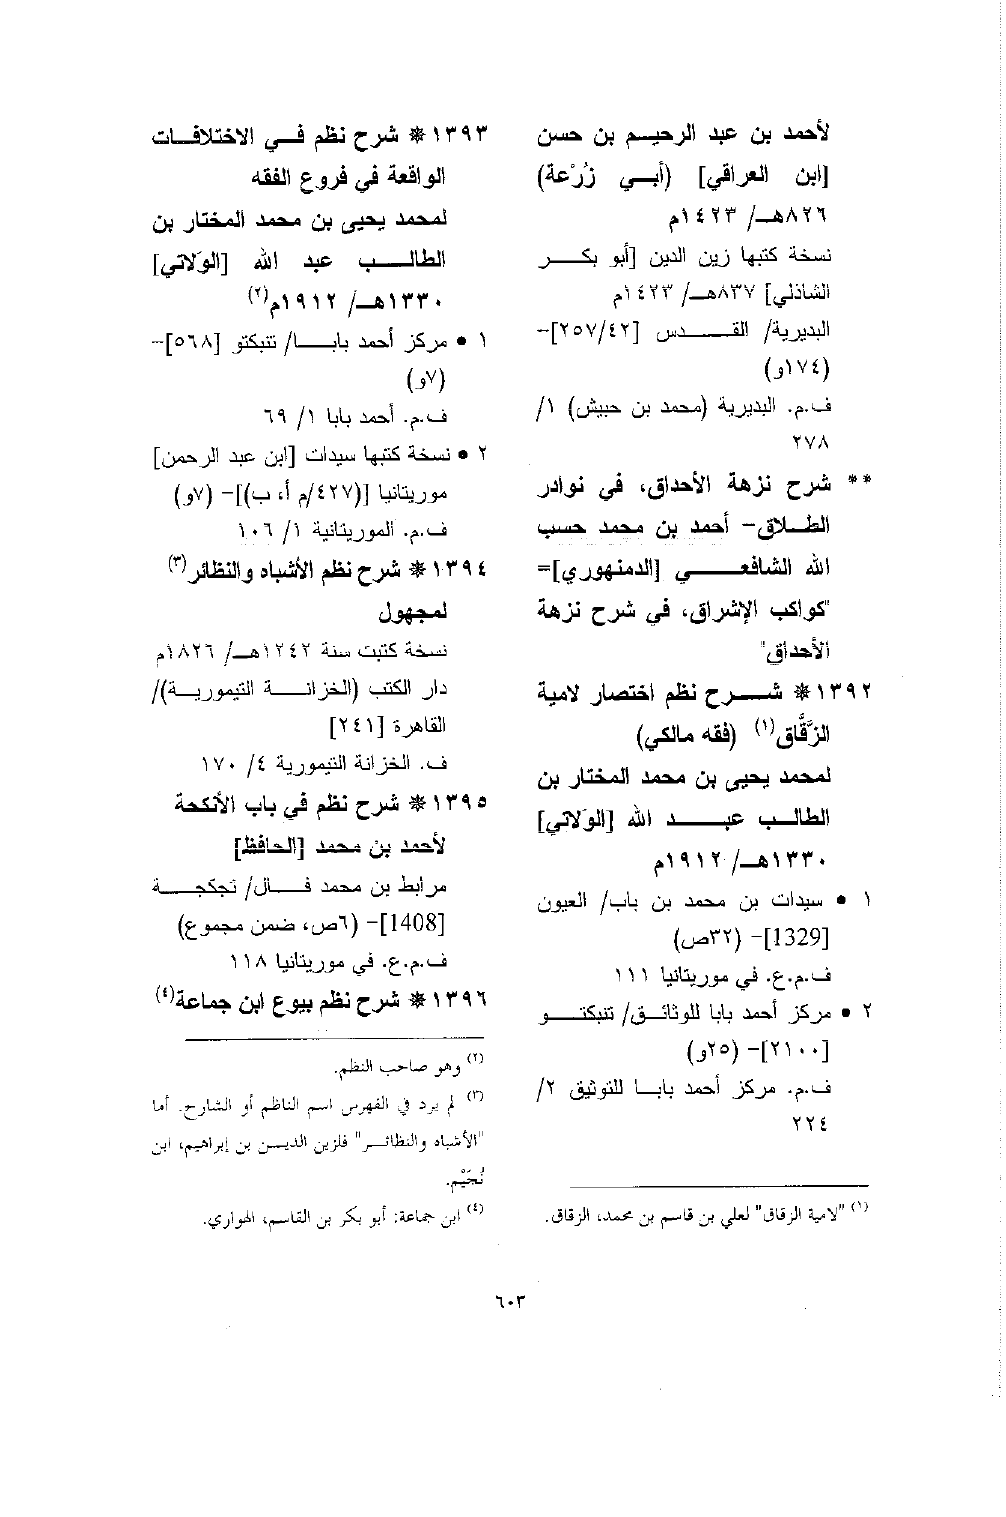 لأحمد بن عبد الرحيم بن حسن
[ابن العراقي] (أبي زُرْعة)
٨٢٦هـ/ ١٤٢٣م
نسخة كتبها زين الدين [أبو بكر
الشاذلي] ٨٣٧هـ/ ١٤٣٣م
البديرية/ القدس [٢٥٧/٤٢]-
(١٧٤و)
ف.م. البديرية (محمد بن حبيش) ١/
٢٧٨
** شرح نزهة الأحداق، في نوادر
الطلاق- أحمد بن محمد حسب
الله الشافعي [الدمنهوري]=
"كواكب الإشراق، في شرح نزهة
الأحداق"
١٣٩٢* شرح نظم اختصار لامية
الزَّقَّاق(١) (فقه مالكي)
لمحمد يحيى بن محمد المختار بن
الطالب عبد الله [الوَلاتي]
١٣٣٠هـ/ ١٩١٢م
١ • سيدات بن محمد بن باب/ العيون
[1329]- (٣٢ص)
ف.م.ع. في موريتانيا ١١١
٢ • مركز أحمد بابا للوثائق/ تنبكتو
[٢١٠٠]- (٢٥و)
ف.م. مركز أحمد بابا للتوثيق ٢/
٢٢٤
(١) "لامية الزقاق" لعلي بن قاسم بن محمد، الزقاق.
١٣٩٣* شرح نظم في الاختلافات
الواقعة في فروع الفقه
لمحمد يحيى بن محمد المختار بن
الطالب عبد الله [الوَلاتي]
١٣٣٠هـ/ ١٩١٢م(٢)
١ • مركز أحمد بابا/ تنبكتو [٥٦٨]-
(٧و)
ف.م. أحمد بابا ١/ ٦٩
٢ • نسخة كتبها سيدات [ابن عبد الرحمن]
موريتانيا [(٤٢٧/م أ، ب)]- (٧و)
ف.م. الموريتانية ١/ ١٠٦
١٣٩٤* شرح نظم الأشباه والنظائر(٣)
لمجهول
نسخة كتبت سنة ١٢٤٢هـ/ ١٨٢٦م
دار الكتب (الخزانة التيمورية)/
القاهرة [٢٤١]
ف. الخزانة التيمورية ٤/ ١٧٠
١٣٩٥* شرح نظم في باب الأنكحة
لأحمد بن محمد [الحافظ]
مرابط بن محمد فال/ تجكجة
[1408]- (٦ص، ضمن مجموع)
ف.م.ع. في موريتانيا ١١٨
١٣٩٦* شرح نظم بيوع ابن جماعة(٤)
(٢) وهو صاحب النظم.
(٣) لم يرد في الفهرس اسم الناظم أو الشارح. أما
"الأشباه والنظائر" فلزين الدين بن إبراهيم، ابن
نُجَيْم.
(٤) ابن جماعة: أبو بكر بن القاسم، الهواري.
٦٠٣